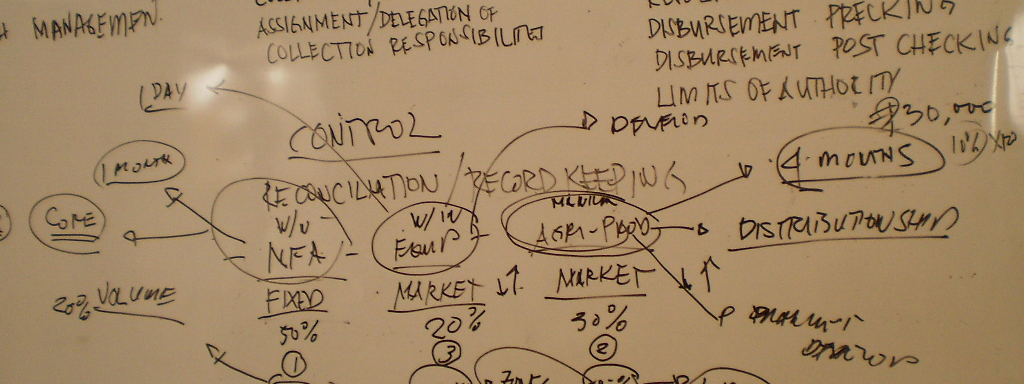 MANAGEMENT
ASSIGNMENT/DELEGATION OF
COLLECTION RESPONSIBILITIES
DISBURSEMENT PRECKING
DISBURSEMENT POST CHECKING
LIMITS OF AUTHORITY
1 DAY
CONTROL
DEVELOP
₱30,000
1 MONTH
4 MONTHS
10%
RECONCILIATION / RECORD KEEPING
CORE
W/U
NFA
W/IN
EQUIP
AGRI-PROD
DISTRIBUTORSHIP
20% VOLUME
FIXED
MARKET ↓↑
MARKET
↓↑
50%
20%
30%
1
3
2